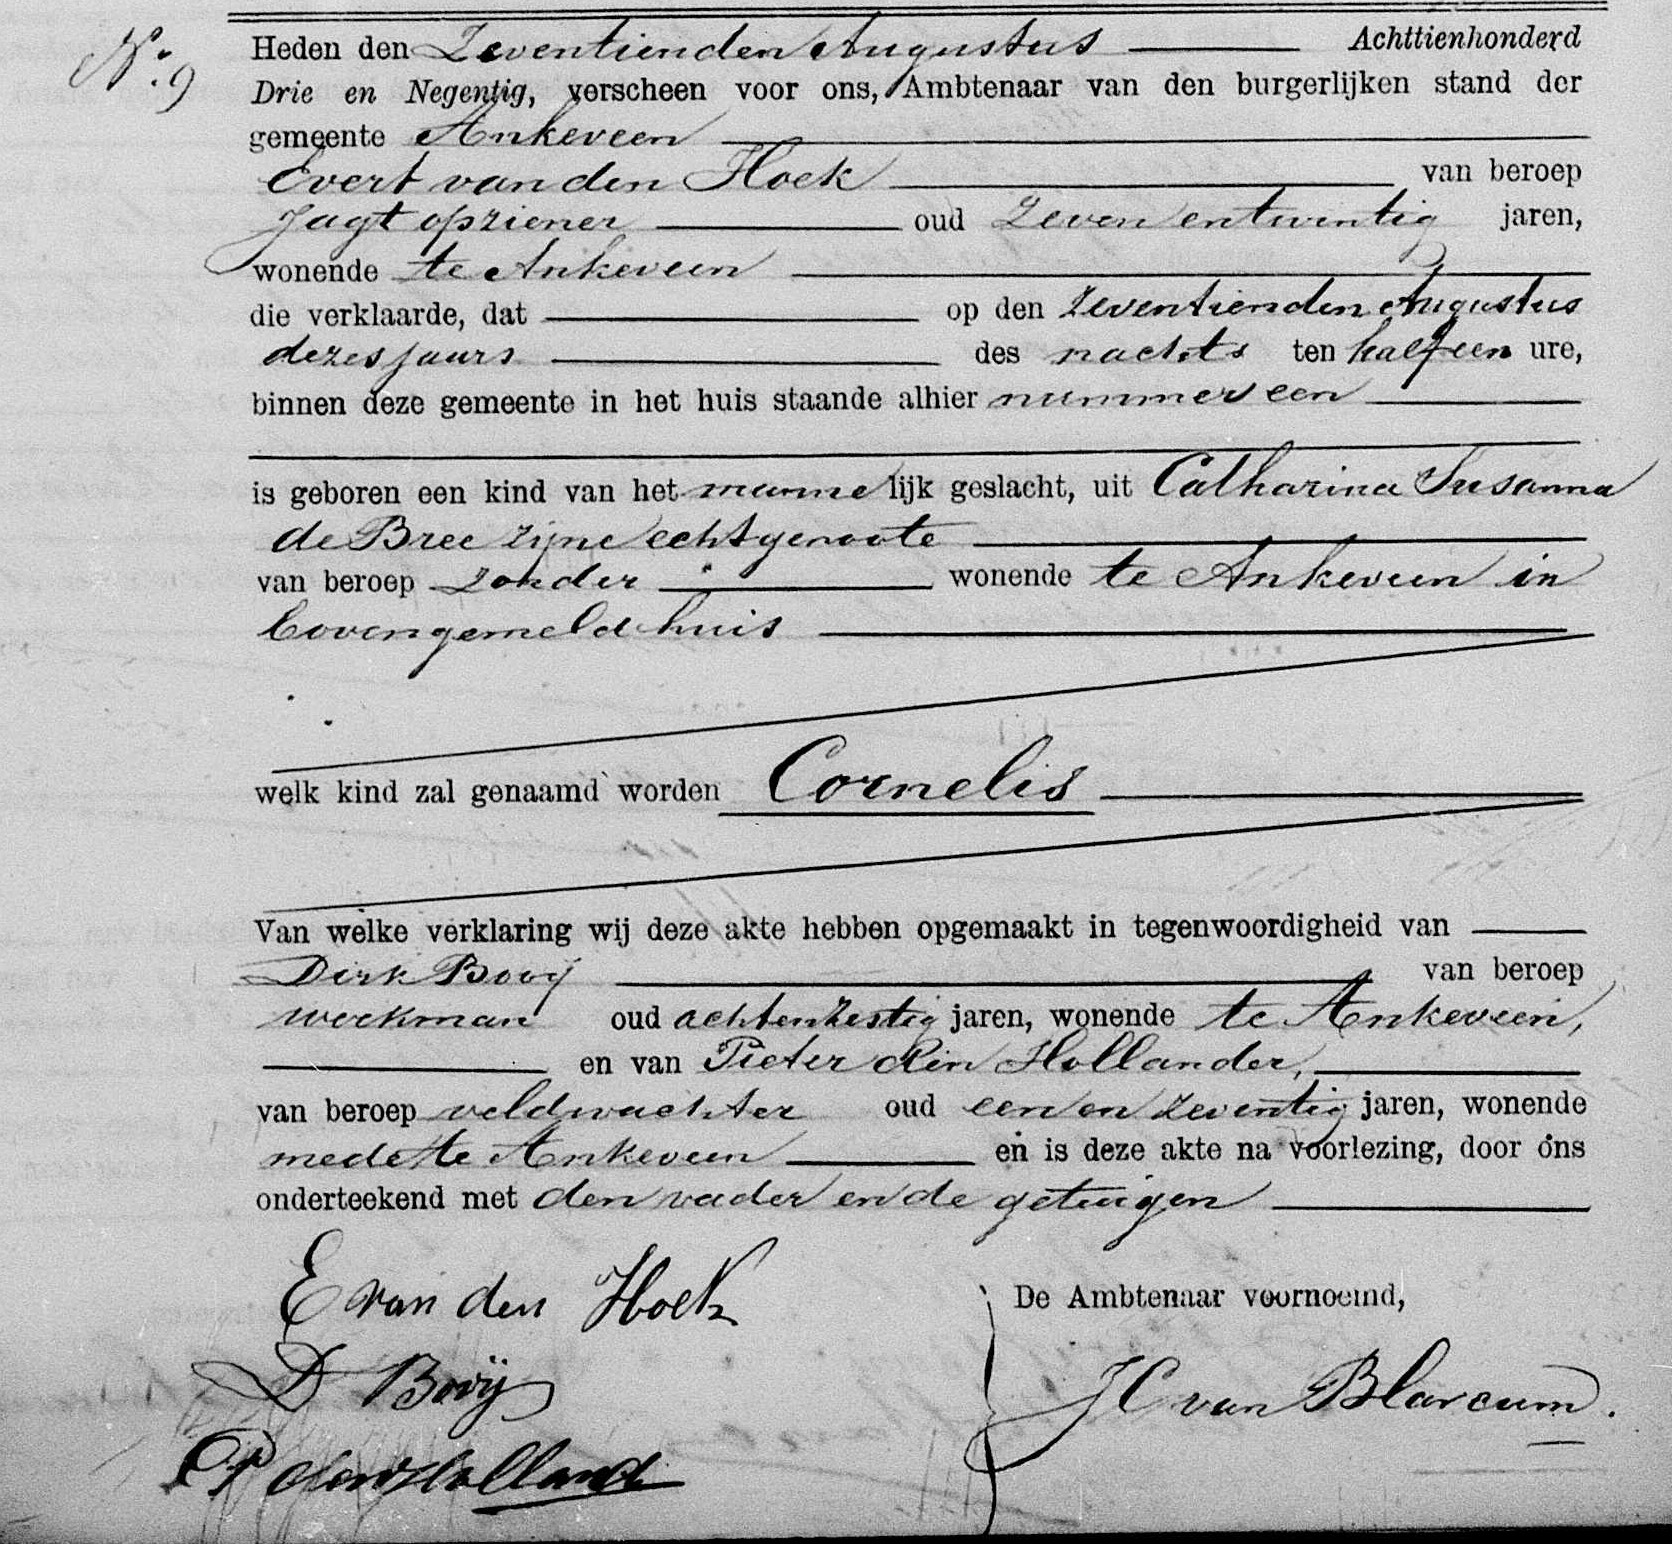 No. 9
Heden den Zeventienden Augustus Achttienhonderd
Drie en Negentig, verscheen voor ons, Ambtenaar van den burgerlijken stand der
gemeente Ankeveen
Evert van den Hoek van beroep
Jagt opziener oud Zeven en twintig jaren,
wonende te Ankeveen
die verklaarde, dat op den zeventienden Augustus
dezes jaars des nachts ten half een ure,
binnen deze gemeente in het huis staande alhier nummer een
is geboren een kind van het mannelijk geslacht, uit Catharina Susanna
de Bree zijne echtgenoote
van beroep zonder wonende te Ankeveen in
bovengemeld huis
welk kind zal genaamd worden Cornelis
Van welke verklaring wij deze akte hebben opgemaakt in tegenwoordigheid van
Dirk Booij van beroep
werkman oud achtenzestig jaren, wonende te Ankeveen,
en van Pieter den Hollander,
van beroep veldwachter oud een en zeventig jaren, wonende
mede te Ankeveen en is deze akte na voorlezing, door ons
onderteekend met den vader en de getuigen
E van den Hoek
De Ambtenaar voornoemd,
D Booij
JC van Blarcum.
P den Holland